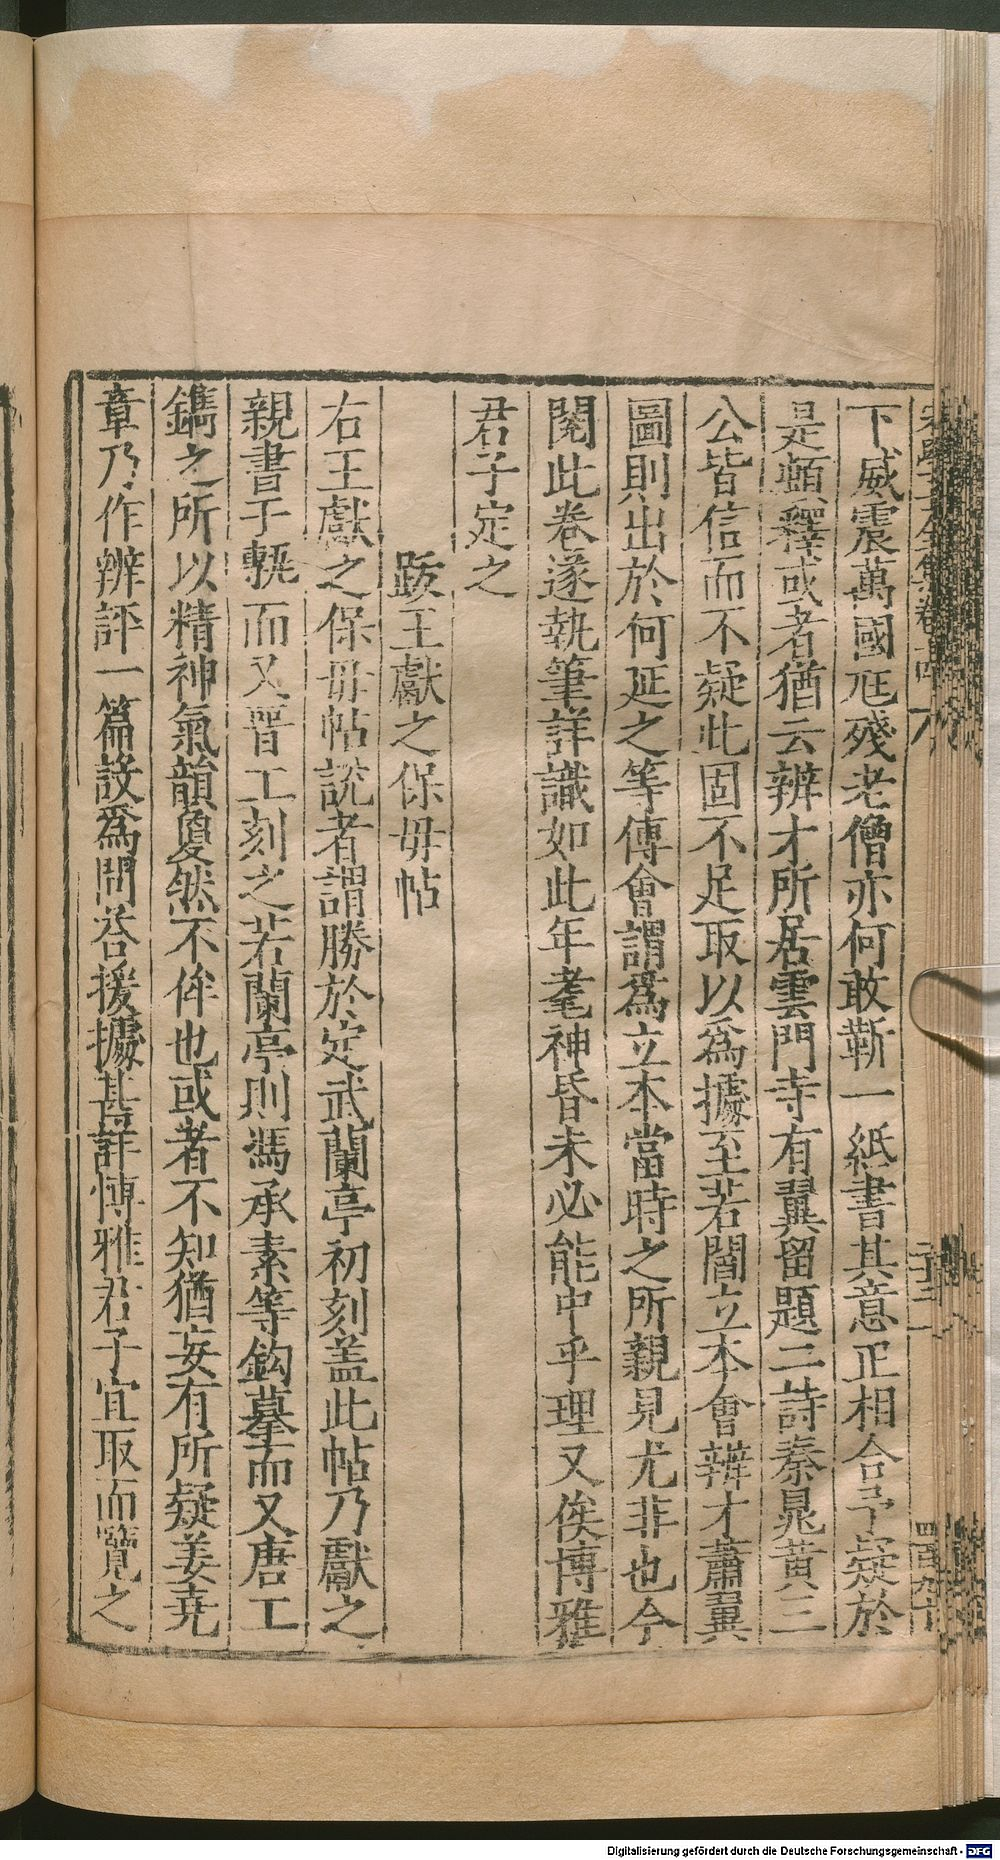 下威震萬國尫殘老僧亦何敢靳一紙書其意正相合予疑於
是頓釋或者猶云辨才所居雲門寺有翼留題二詩秦晁黃三
公皆信而不疑此固不足取以爲據至若閻立本會辨才蕭翼
圖則出於何延之等傳會謂爲立本當時之所親見尤非也今
閱此卷遂執筆詳識如此年耄神昏未必能中乎理又俟博雅
君子定之
跋王獻之保毋帖
右王獻之保毋帖說者謂勝於定武蘭亭初刻盖此帖乃獻之
親書于甎而又晋工刻之若蘭亭則馮承素等鈎摹而又唐工
鐫之所以精神氣韻敻然不侔也或者不知猶妄有所疑姜堯
章乃作辨評一篇設爲問荅援據甚詳愽雅君子宜取而覽之
Digitalisierung gefördert durch die Deutsche Forschungsgemeinschaft - DFG